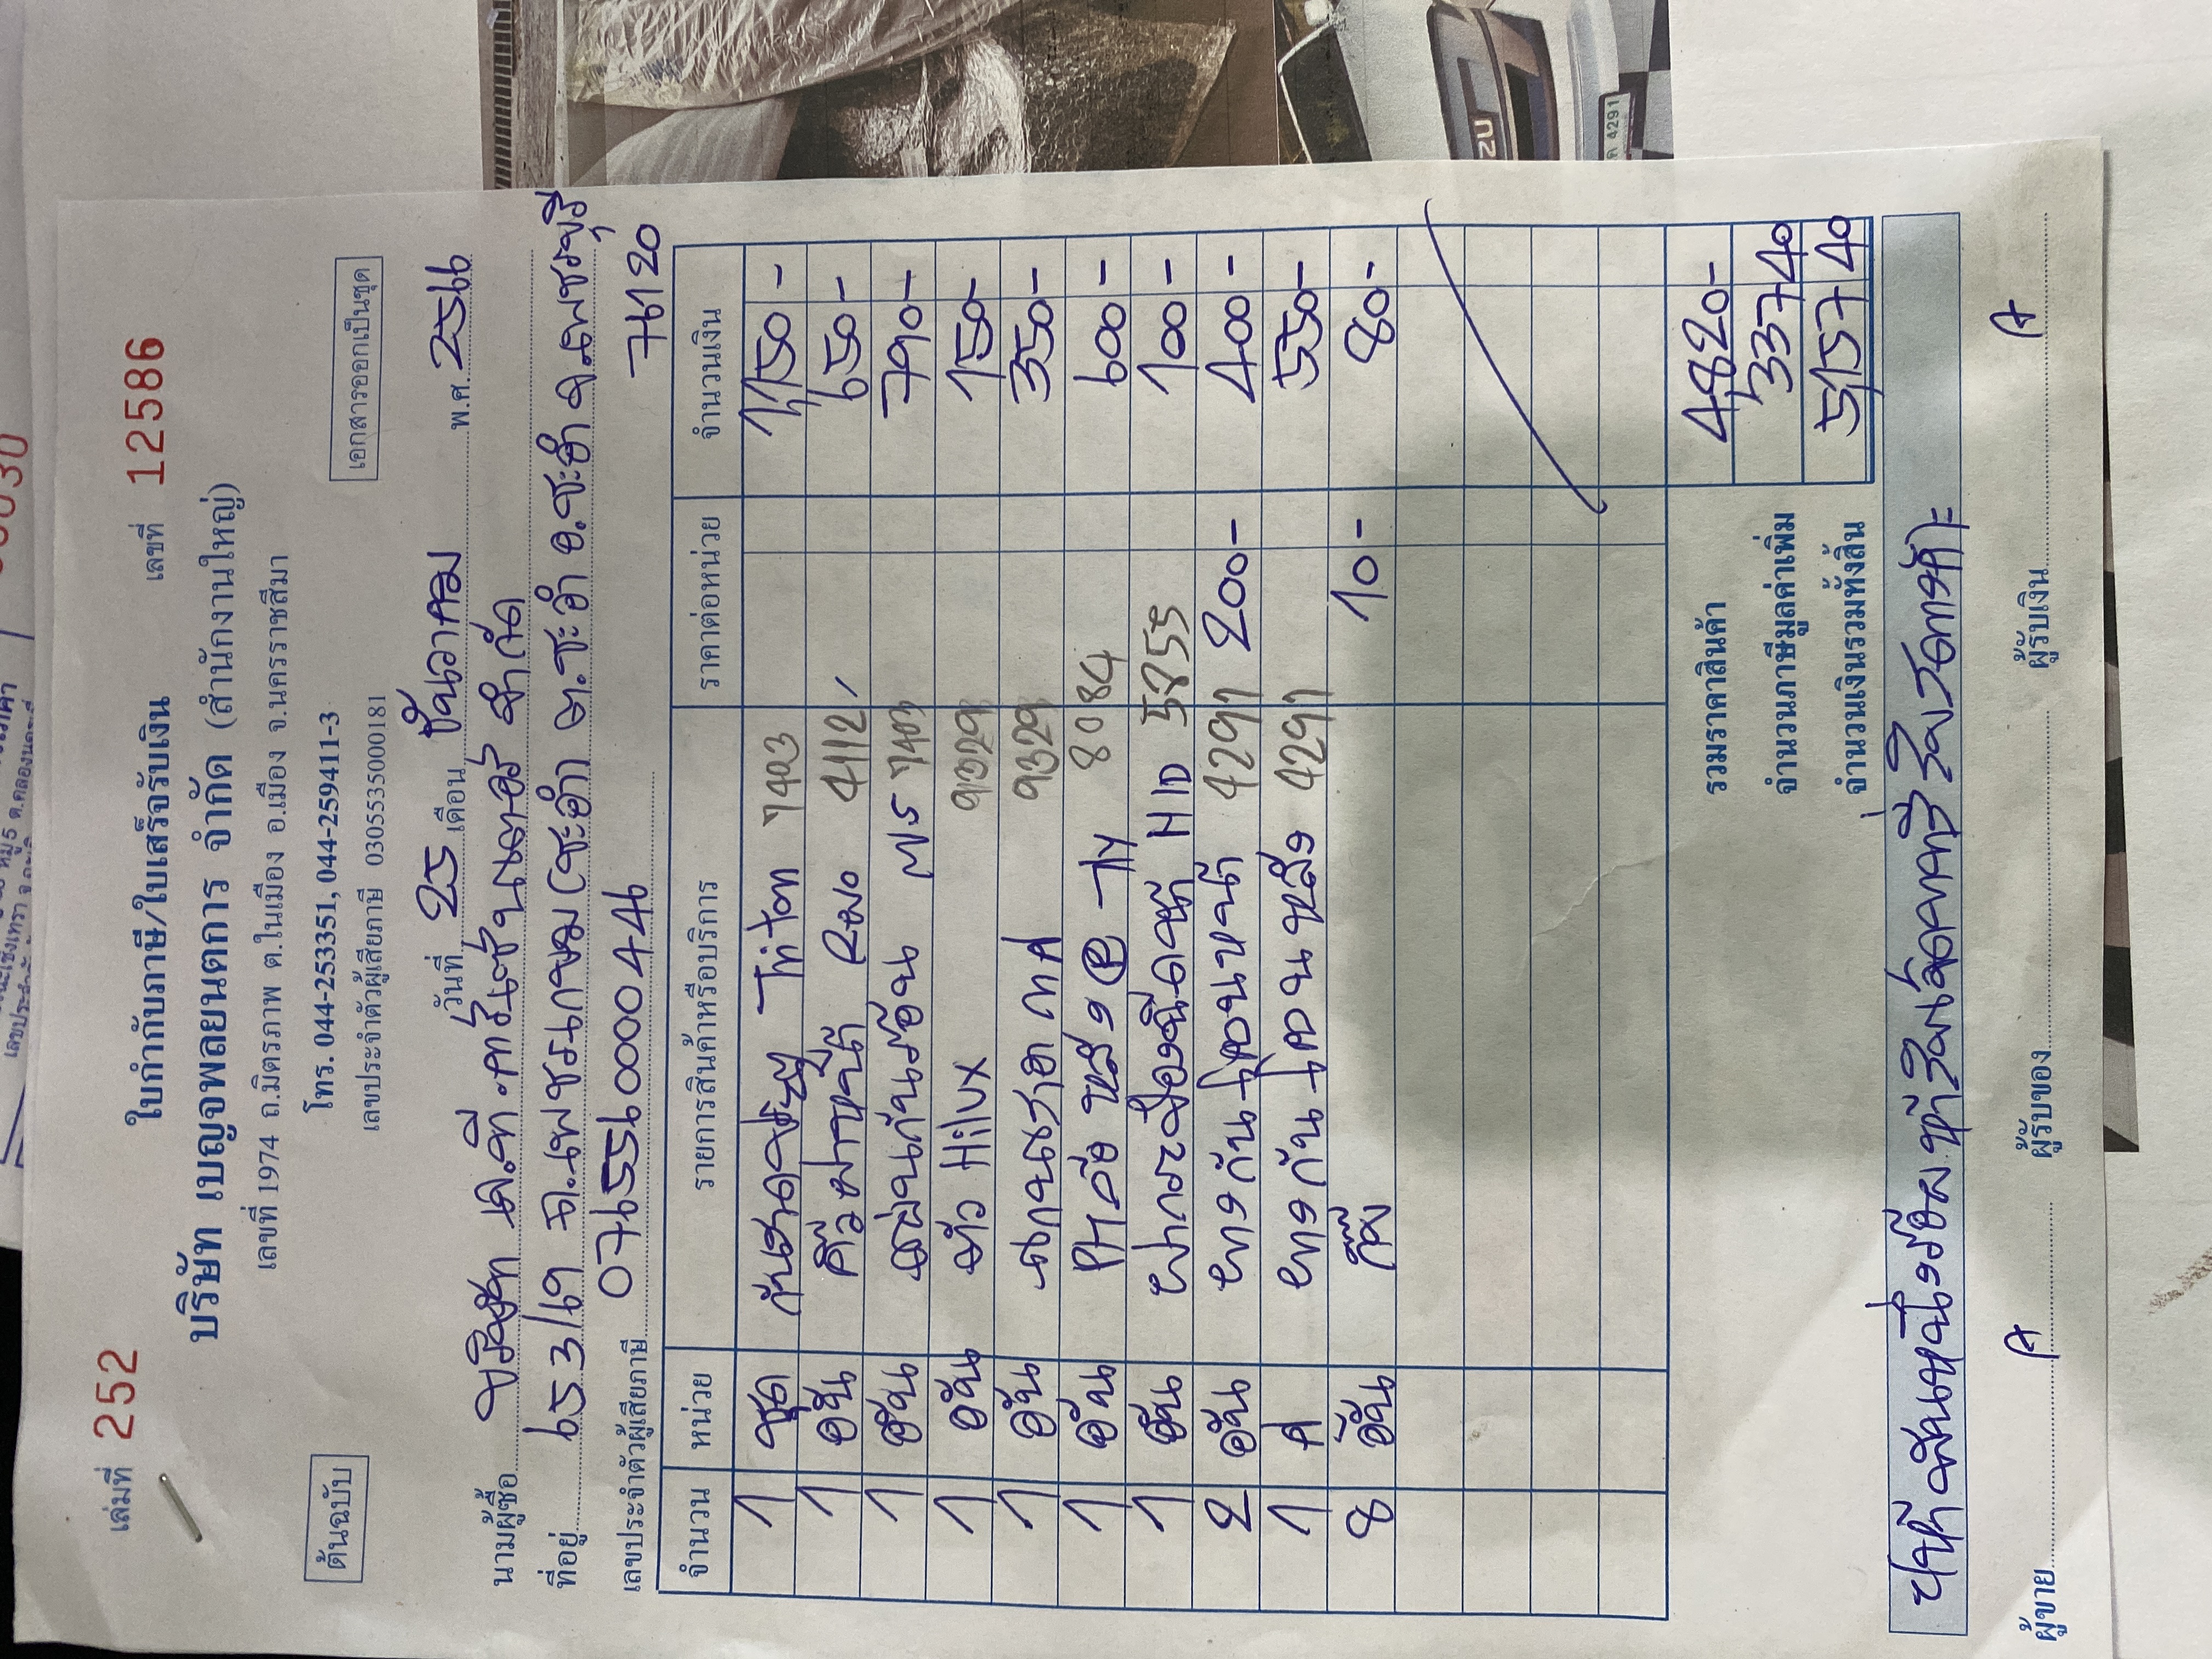 เล่มที่ 252
ใบกำกับภาษี/ใบเสร็จรับเงิน
เลขที่ 12586
บริษัท เบญจพลยนตการ จำกัด (สำนักงานใหญ่)
เลขที่ 1974 ถ.มิตรภาพ ต.ในเมือง อ.เมือง จ.นครราชสีมา
ต้นฉบับ
โทร. 044-253351, 044-259411-3
เอกสารออกเป็นชุด
เลขประจำตัวผู้เสียภาษี 0305535000181
วันที่ 25 เดือน ธันวาคม พ.ศ. 2566
นามผู้ซื้อ บริษัท เค.ที. จำกัด
ที่อยู่ 653/19 ถ.เพชรเกษม (ชะอำ) ต.ชะอำ อ.ชะอำ จ.เพชรบุรี
เลขประจำตัวผู้เสียภาษี 0765560000446 76120
จำนวน หน่วย รายการสินค้าหรือบริการ ราคาต่อหน่วย จำนวนเงิน
1 ชุด Triton 7403 1,150 -
1 อัน คิ้ว 4112 650 -
1 อัน 7403 790 -
1 อัน Hilux 9329 150 -
1 อัน 9329 350 -
1 อัน 8084 600 -
1 อัน 5855 100 -
2 อัน ยางกันโคลนหน้า 4291 200 - 400 -
1 ยางกันโคลนหลัง 4291 550 -
8 อัน กิ๊บ 10 - 80 -
รวมราคาสินค้า 4,820 -
จำนวนภาษีมูลค่าเพิ่ม 337 40
จำนวนเงินรวมทั้งสิ้น 5,157 40
ห้าพันหนึ่งร้อยห้าสิบเจ็ดบาทสี่สิบสตางค์
ผู้ขาย ผู้รับของ ผู้รับเงิน
4291